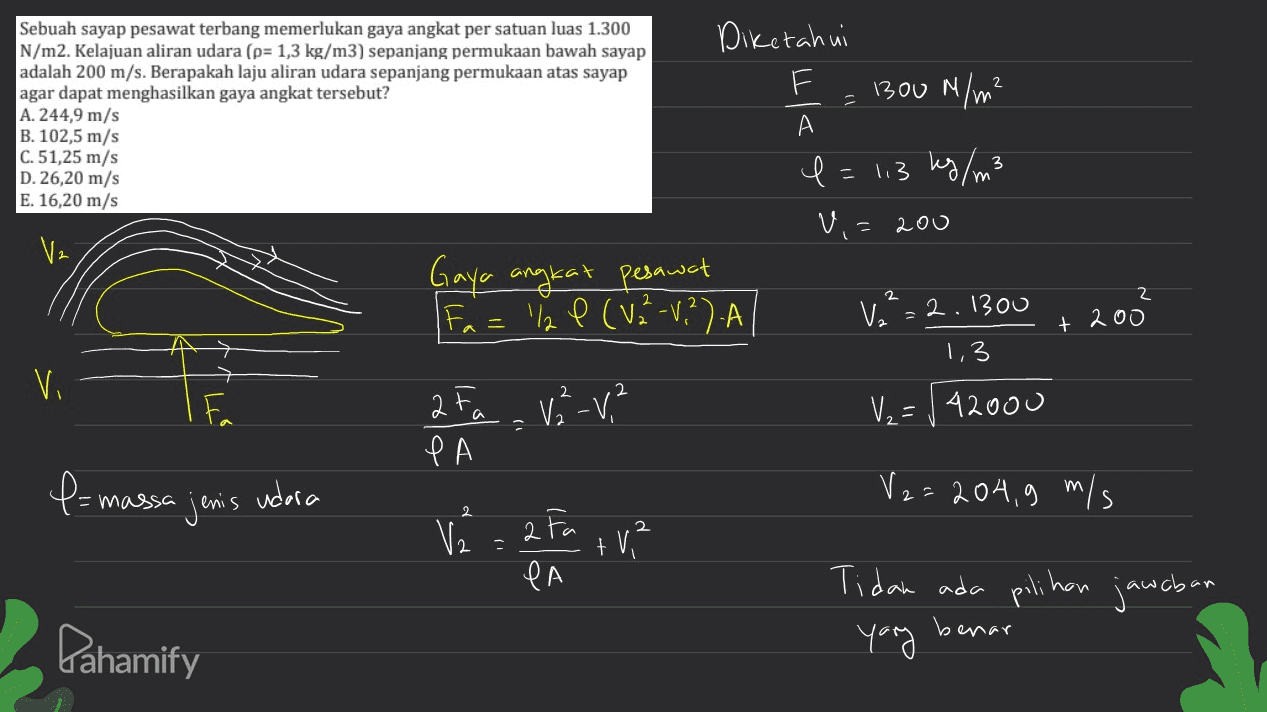 Sebuah sayap pesawat terbang memerlukan gaya angkat per satuan luas 1.300
N/m2. Kelajuan aliran udara (ρ= 1,3 kg/m3) sepanjang permukaan bawah sayap
adalah 200 m/s. Berapakah laju aliran udara sepanjang permukaan atas sayap
agar dapat menghasilkan gaya angkat tersebut?
A. 244,9 m/s
B. 102,5 m/s
C. 51,25 m/s
D. 26,20 m/s
E. 16,20 m/s
V₂
V₁
Fa
ρ = massa jenis udara
Gaya angkat pesawat
Fa = 1/2 ρ (V₂² - V₁²).A
2 Fa / ρA = V₂² - V₁²
V₂² = 2 Fa / ρA + V₁²
Diketahui
F / A = 1300 N/m²
ρ = 1,3 kg/m³
V₁ = 200
V₂² = 2 . 1300 / 1,3 + 200²
V₂ = √42000
V₂ = 204,9 m/s
Tidak ada pilihan jawaban
yang benar
Pahamify